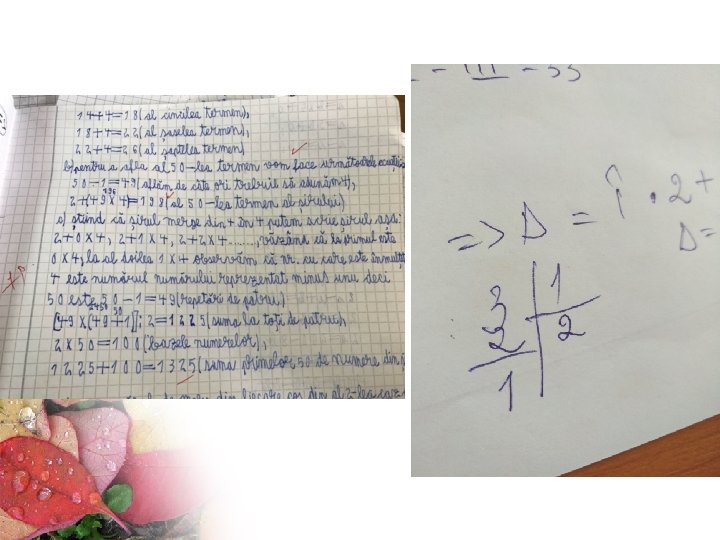 14+4=18(al cincilea termen),
18+4=22(al șaselea termen),
22+4=26(al șaptelea termen)
b)pentru a afla al 50-lea termen vom face următoarele ecuații:
50-1=49(aflăm de câte ori trebuie să adunăm 4),
196
2+(49×4)=198(al 50-lea termen al șirului)
c) știind că șirul merge din 4 în 4 putem scrie șirul așa:
2+0×4, 2+1×4, 2+2×4......, văzând că la primul este
0×4, la al doilea 1×4 observăm că nr. cu care este înmulțit
4 este numărul numărului reprezentat minus unu deci
50 este 50-1=49(repetări de patru)
2450 50
[49×(49+1)]:2=1225(suma la toți de patru),
2×50=100(bazele numerelor),
1225+100=1325(suma primelor 50 de numere din
din fiecare coș din al 2-lea caz
- III - 33
=> D = Î · 2 +
D =
3 | 1
2 | 2
1